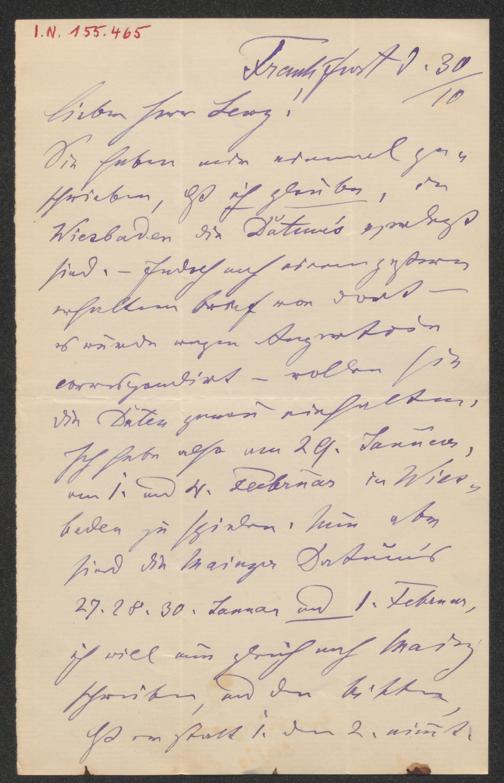 I.N. 155.465
Frankfurt d. 30/10
Lieber Herr Lewy!
Sie haben mir einmal ge-
schrieben, daß ich glaube, in
Wiesbaden die Datums
sind. – Jedoch nach einem gestern
erhaltenen Brief von dort –
es würde wegen
correspondirt – wollen sie
die Daten genau einhalten.
Ich habe also am 29. Januar,
am 1. und 4. Februar in Wies-
baden zu spielen. Nun aber
sind die Mainzer Datums
27. 28. 30. Januar und 1. Februar,
ich will nun gleich nach Mainz
schreiben, und den bitten,
daß er statt 1. den 2. nimmt.